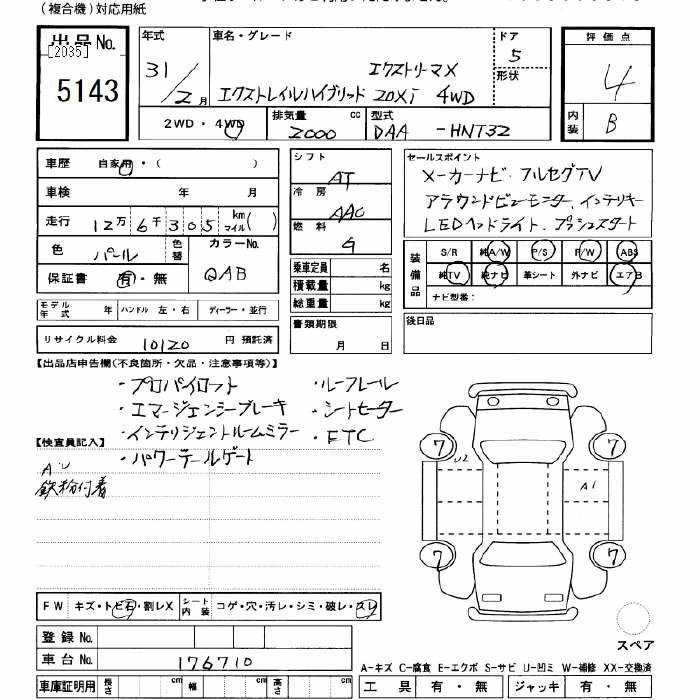 (複合機)対応用紙
出品No. [2035] 5143
年式 31/2月
車名・グレード エクストリーマX
エクストレイルハイブリッド 20Xi 4WD
ドア 5
形状
評価点 4
内装 B
2WD・4WD
排気量 2000 cc
型式 DAA -HNT32
車歴 自家用・( )
車検 年 月
走行 12万6千305km マイル( )
色 パール 色替
カラーNo. QAB
保証書 有・無
モデル年式 年
ハンドル 左・右
ディーラー・並行
リサイクル料金 10120 円 預託済
シフト AT
冷房 AAC
燃料 G
乗車定員 名
積載量 kg
総重量 kg
書類期限
月 日
セールスポイント
メーカーナビ・フルセグTV
アラウンドビューモニター、インテリキー
LEDヘッドライト、プッシュスタート
装備品 S/R 純A/W P/S P/W ABS
純TV 純ナビ 革シート 外ナビ エアB
ナビ型番:
後日品
【出品店申告欄(不良箇所・欠品・注意事項等)】
・プロパイロット ・ルーフレール
・エマージェンシーブレーキ ・シートヒーター
・インテリジェントルームミラー ・ETC
・パワーテールゲート
【検査員記入】
鉄粉付着
7 7
U2
A1
7 7
スペア
FW キズ・トビ石・割レX
シート内装 コゲ・穴・汚レ・シミ・破レ・スレ
登録No.
車台No. 176710
車庫証明用 長さ cm 幅 cm 高さ cm
A-キズ C-腐食 E-エクボ S-サビ U-凹ミ W-補修 XX-交換済
工具 有・無 ジャッキ 有・無